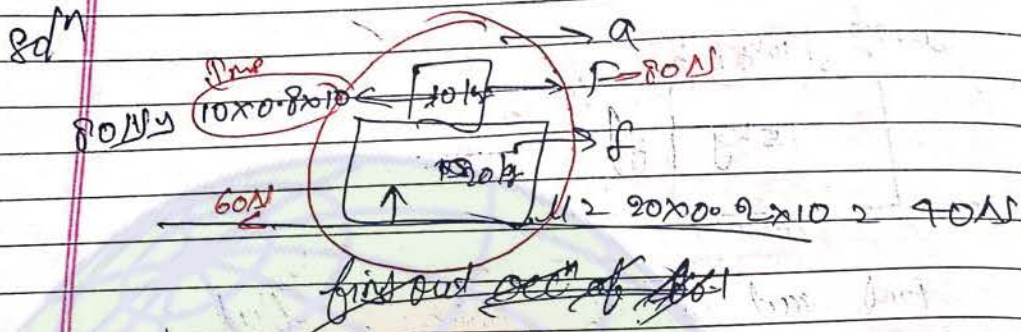 Solⁿ
Imp
→ a
80N ← 10×0.8×10 ← 10kg → F = 80N
20kg → f
60N
μ = 20×0.2×10 = 40N
find out accⁿ of